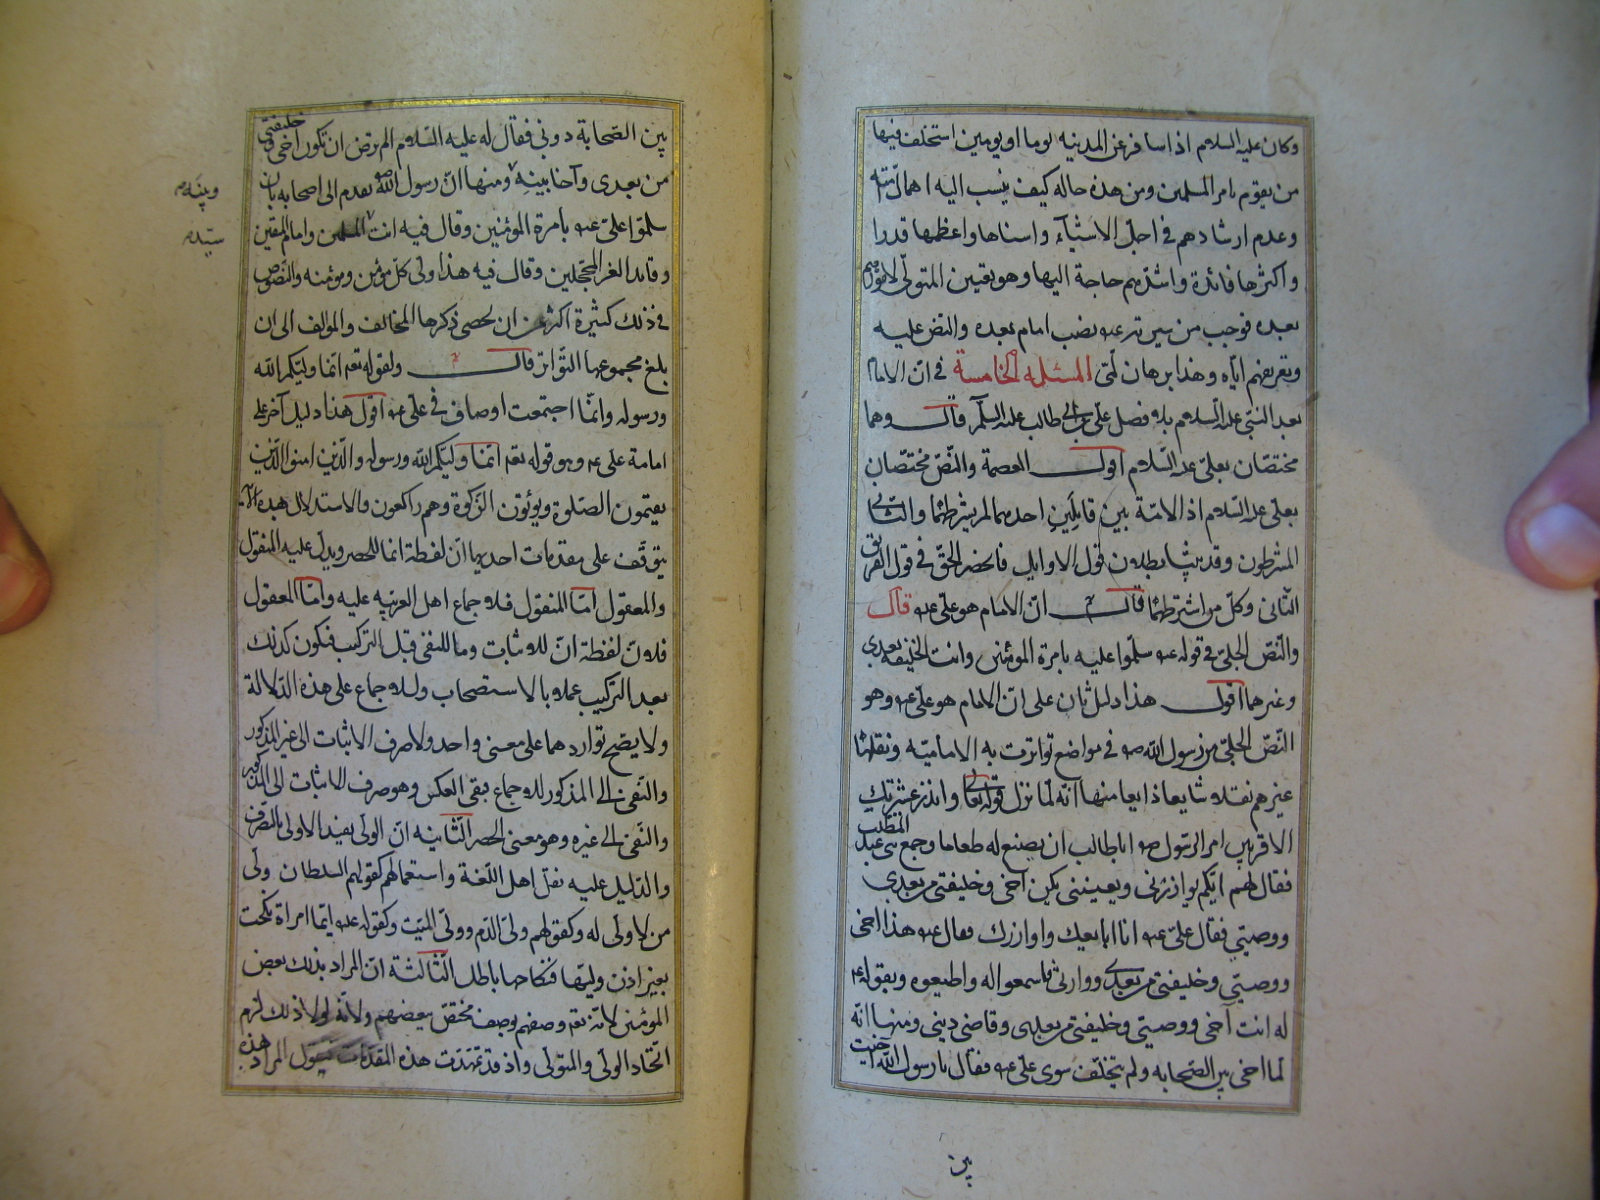 وكان عليه السلام اذا سافر عن المدينه يوما او يومين استخلف فيها
من يقوم بامر المسلمين ومن هذه حاله كيف ينسب اليه اهمال امته
وعدم ارشادهم في اجلّ الاشيآء واسناها واعظمها قدرا
واكثرها فائدة واشدّهم حاجة اليها وهو تعيين المتولّى لامورهم
بعده فوجب من سيرته عم نصب امام بعده والنص عليه
وتعريفهم ايّاه وهذا برهان لمّى المسئله الخامسة في انّ الامام
بعد النبّى عليه السلام بلا فصل علّى بن ابي طالب عليه السلم قال وهما
مختصّان بعلّى عليه السّلام اقول العصمة والنّصّ مختصّان
بعلّى عليه السلام اذ الامّة بين قائلين احدهما لم يشترطهما والثّاني
المشترطون وقد بيّنا بطلان قول الاوايل فانحصر الحقّ في قول الفريق
الثّانى وكلّ من اشترطهما قال انّ الامام هو علّى عم قال
والنّصّ الجلّى في قوله عم سلّموا عليه بامرة المؤمنين وانت الخليفة بعدى
وغيرها اقول هذا دليل ثان على انّ الامام هو علّى عم وهو
النّصّ الجلّى من رسول الله صم في مواضع تواترت به الاماميّه ونقلها
غيرهم نقلا شايعا ذايعا منها انّه لمّا نزل قوله تعالى وانذر عشيرتك
الاقربين امر الرّسول صم اباطالب ان يصنع له طعاما وجمع بنى عبد المطلب
فقال لهم ايّكم يوازرنى ويعيننى يكن اخى وخليفتى من بعدى
ووصيّى فقال علّى عم انا ابايعك واوازرك فقال عم هذا اخى
ووصيّى وخليفتى من بعدى ووارثى فاسمعوا له واطيعوه وبقوله عم
له انت اخى ووصيّى وخليفتى من بعدى وقاضى دينى ومنها انّه
لما اخى بين الصّحابه ولم يتخلّف سوى علّى عم فقال يا رسول الله اخيت
بين
بين الصّحابة دونى فقال له عليه السّلام الم ترض ان تكون اخى وخليفتى
من بعدى وآخا بينه ومنها انّ رسول الله صم تقدم الى اصحابه بان
سلّموا على علّى عم بامرة المؤمنين وقال فيه انت المسلمين وامام المتقين
وقائد الغر المحجّلين وقال فيه هذا ولى كلّ مؤمن ومؤمنه والنّصوص
في ذلك كثيرة اكثر من ان يحصى ذكرها المخالف والمؤالف الى ان
بلغ مجموعها التّواتر قال ولقوله تعم انّما وليّكم الله
ورسوله وانّما اجتمعت اوصاف في علّى عم اقول هذا دليل آخر على
امامة علّى عم وهو قوله تعم انّما وليّكم الله ورسوله والّذين امنوا الّذين
يقيمون الصّلوة ويؤتون الزّكوة وهم راكعون والاستدلال بهذه الآية
يتوقّف على مقدمات احديها انّ لفظة انما للحصر ويدلّ عليه المنقول
والمعقول امّا المنقول فلاجماع اهل العربيّه عليه وامّا المعقول
فلانّ لفظة انّ للاثبات وما للنفى قبل التركيب فتكون كذلك
بعد التركيب عملا بالاستصحاب وللاجماع على هذه الدّلالة
ولا يصحّ تواردهما على معنى واحد ولا صرف الاثبات الى غير المذكور
والنّفى الى المذكور للاجماع بقى العكس وهو صرف الاثبات الى المذكور
والنّفى الى غيره وهو معنى الحصر الثّانيه انّ الولّى يفيد الاولى بالتصرّف
والدّليل عليه نقل اهل اللّغة واستعمالهم كقولهم السلطان ولّى
من لا ولّى له وكقولهم ولّى الدّم وولّى الميّت وكقوله عم ايّما امراة نكحت
بغير اذن وليّها فنكاحها باطل الثّالثة انّ المراد بذلك بعض
المؤمنين لانّه تعم وصفهم بوصف مختصّ ببعضهم ولانّه لولا ذلك لزم
اتّحاد الولّى والمتولّى واذ قد تمهّدت هذه المقدمات فنقول المراد بهذه